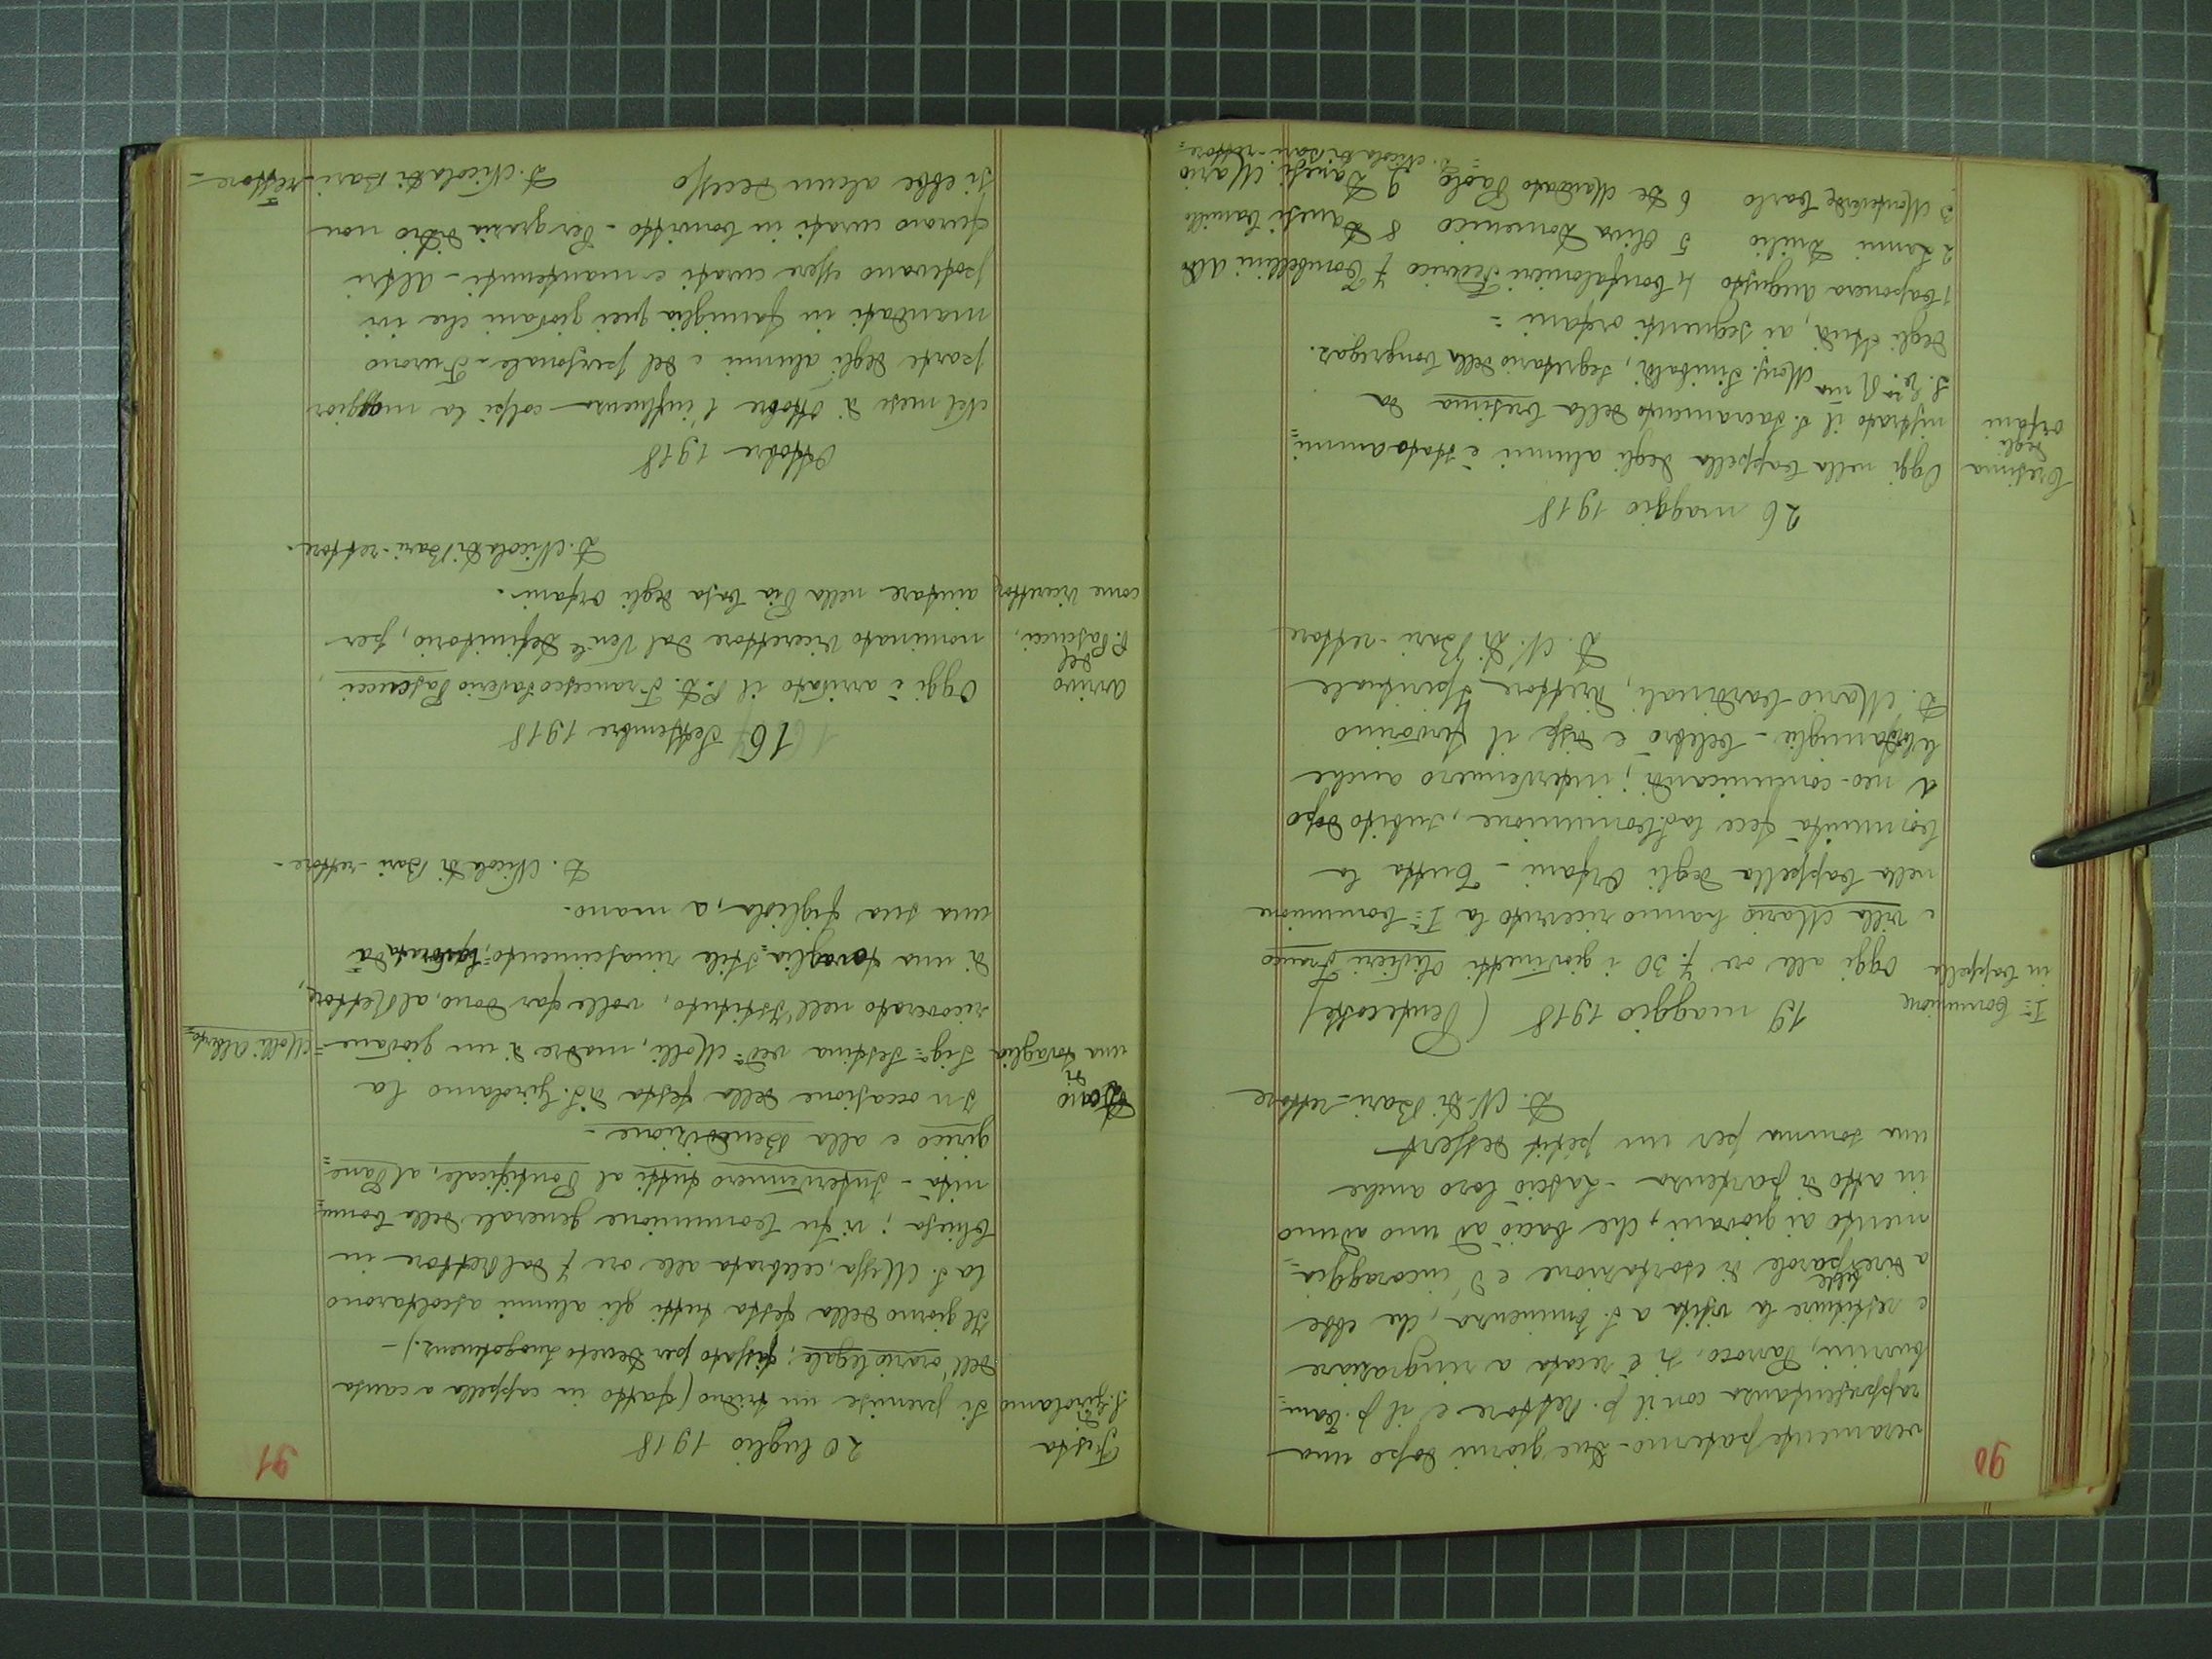 90
veramente paterno - Due giorni dopo una
rappresentanza con il p. Rettore e il p. Tam=
burrini, Parroco, si è recata a ringraziare
e restituire la visita a S. Eminenza, che ebbe
a dire belle parole di esortazione e d'incoraggia=
mento ai giovani, che baciò ad uno ad uno
in atto di partenza - Lasciò loro anche
una somma per un petit dessert
D. N. Di Bari - rettore
19 maggio 1918 (Pentecoste)
Iª Comunione
in Cappella
Oggi alle ore 7.30 i giovinetti Olivieri Franco
e Villa Mario hanno ricevuto la Iª Comunione
nella Cappella degli Orfani - Tutta la
Comunità fece la S. Comunione, subito dopo
i neo-comunicandi; intervennero anche
le famiglie - Celebrò e disse il fervorino
D. Mario Cardinali, Direttore Spirituale
D. N. Di Bari - rettore
26 maggio 1918
Cresima
degli
orfani
Oggi nella Cappella degli alunni è stato ammi=
nistrato il S. Sacramento della Cresima da
S. E. Rma Mons. Sinibaldi, Segretario della Congregaz.
degli Studi, ai seguenti orfani =
1 Caponera Augusto 4 Confalonieri Federico 7 Combellini Aldo
2 Zanni Duilio 5 Oliva Domenico 8 Danesi Camillo
3 Monteverde Carlo 6 De Mandato Paolo 9 Danesi Mario
= D. Nicola Di Bari - rettore =
91
20 luglio 1918
Festa
di
S. Girolamo
Si premise un triduo (fatto in cappella a causa
dell'orario legale, fissato per Decreto Luogotenenz.) -
Il giorno della festa tutti gli alunni ascoltarono
la S. Messa, celebrata alle ore 7 dal Rettore in
Chiesa; vi fu Comunione generale della Comu=
nità - Intervennero tutti al Pontificale, al Pane=
girico e alla Benedizione -
Dono
di
una tovaglia
In occasione della festa di S. Girolamo la
Sigª Settina vedª Molli, madre di un giovane =
= Molli Alberto
ricoverato nell'Istituto, volle far dono, al Rettore,
di una tovaglia = stile rinascimento, = lavorata da
una sua figliola, a mano.
D. Nicola Di Bari - rettore -
16 Settembre 1918
arrivo
del
P. Pascucci,
come vicerettore
Oggi è arrivato il P. D. Francesco Saverio Pascucci,
nominato vicerettore dal Ven.le Definitorio, per
aiutare nella Pia Casa degli Orfani.
D. Nicola Di Bari - rettore.
Ottobre 1918
Nel mese di Ottobre l'influenza colpì la maggior
parte degli alunni e del personale - Furono
mandati in famiglia quei giovani che ivi
potevano essere curati e mantenuti - Altri
furono curati in Convitto - Per grazia di Dio non
si ebbe alcun decesso D. Nicola Di Bari - rettore =